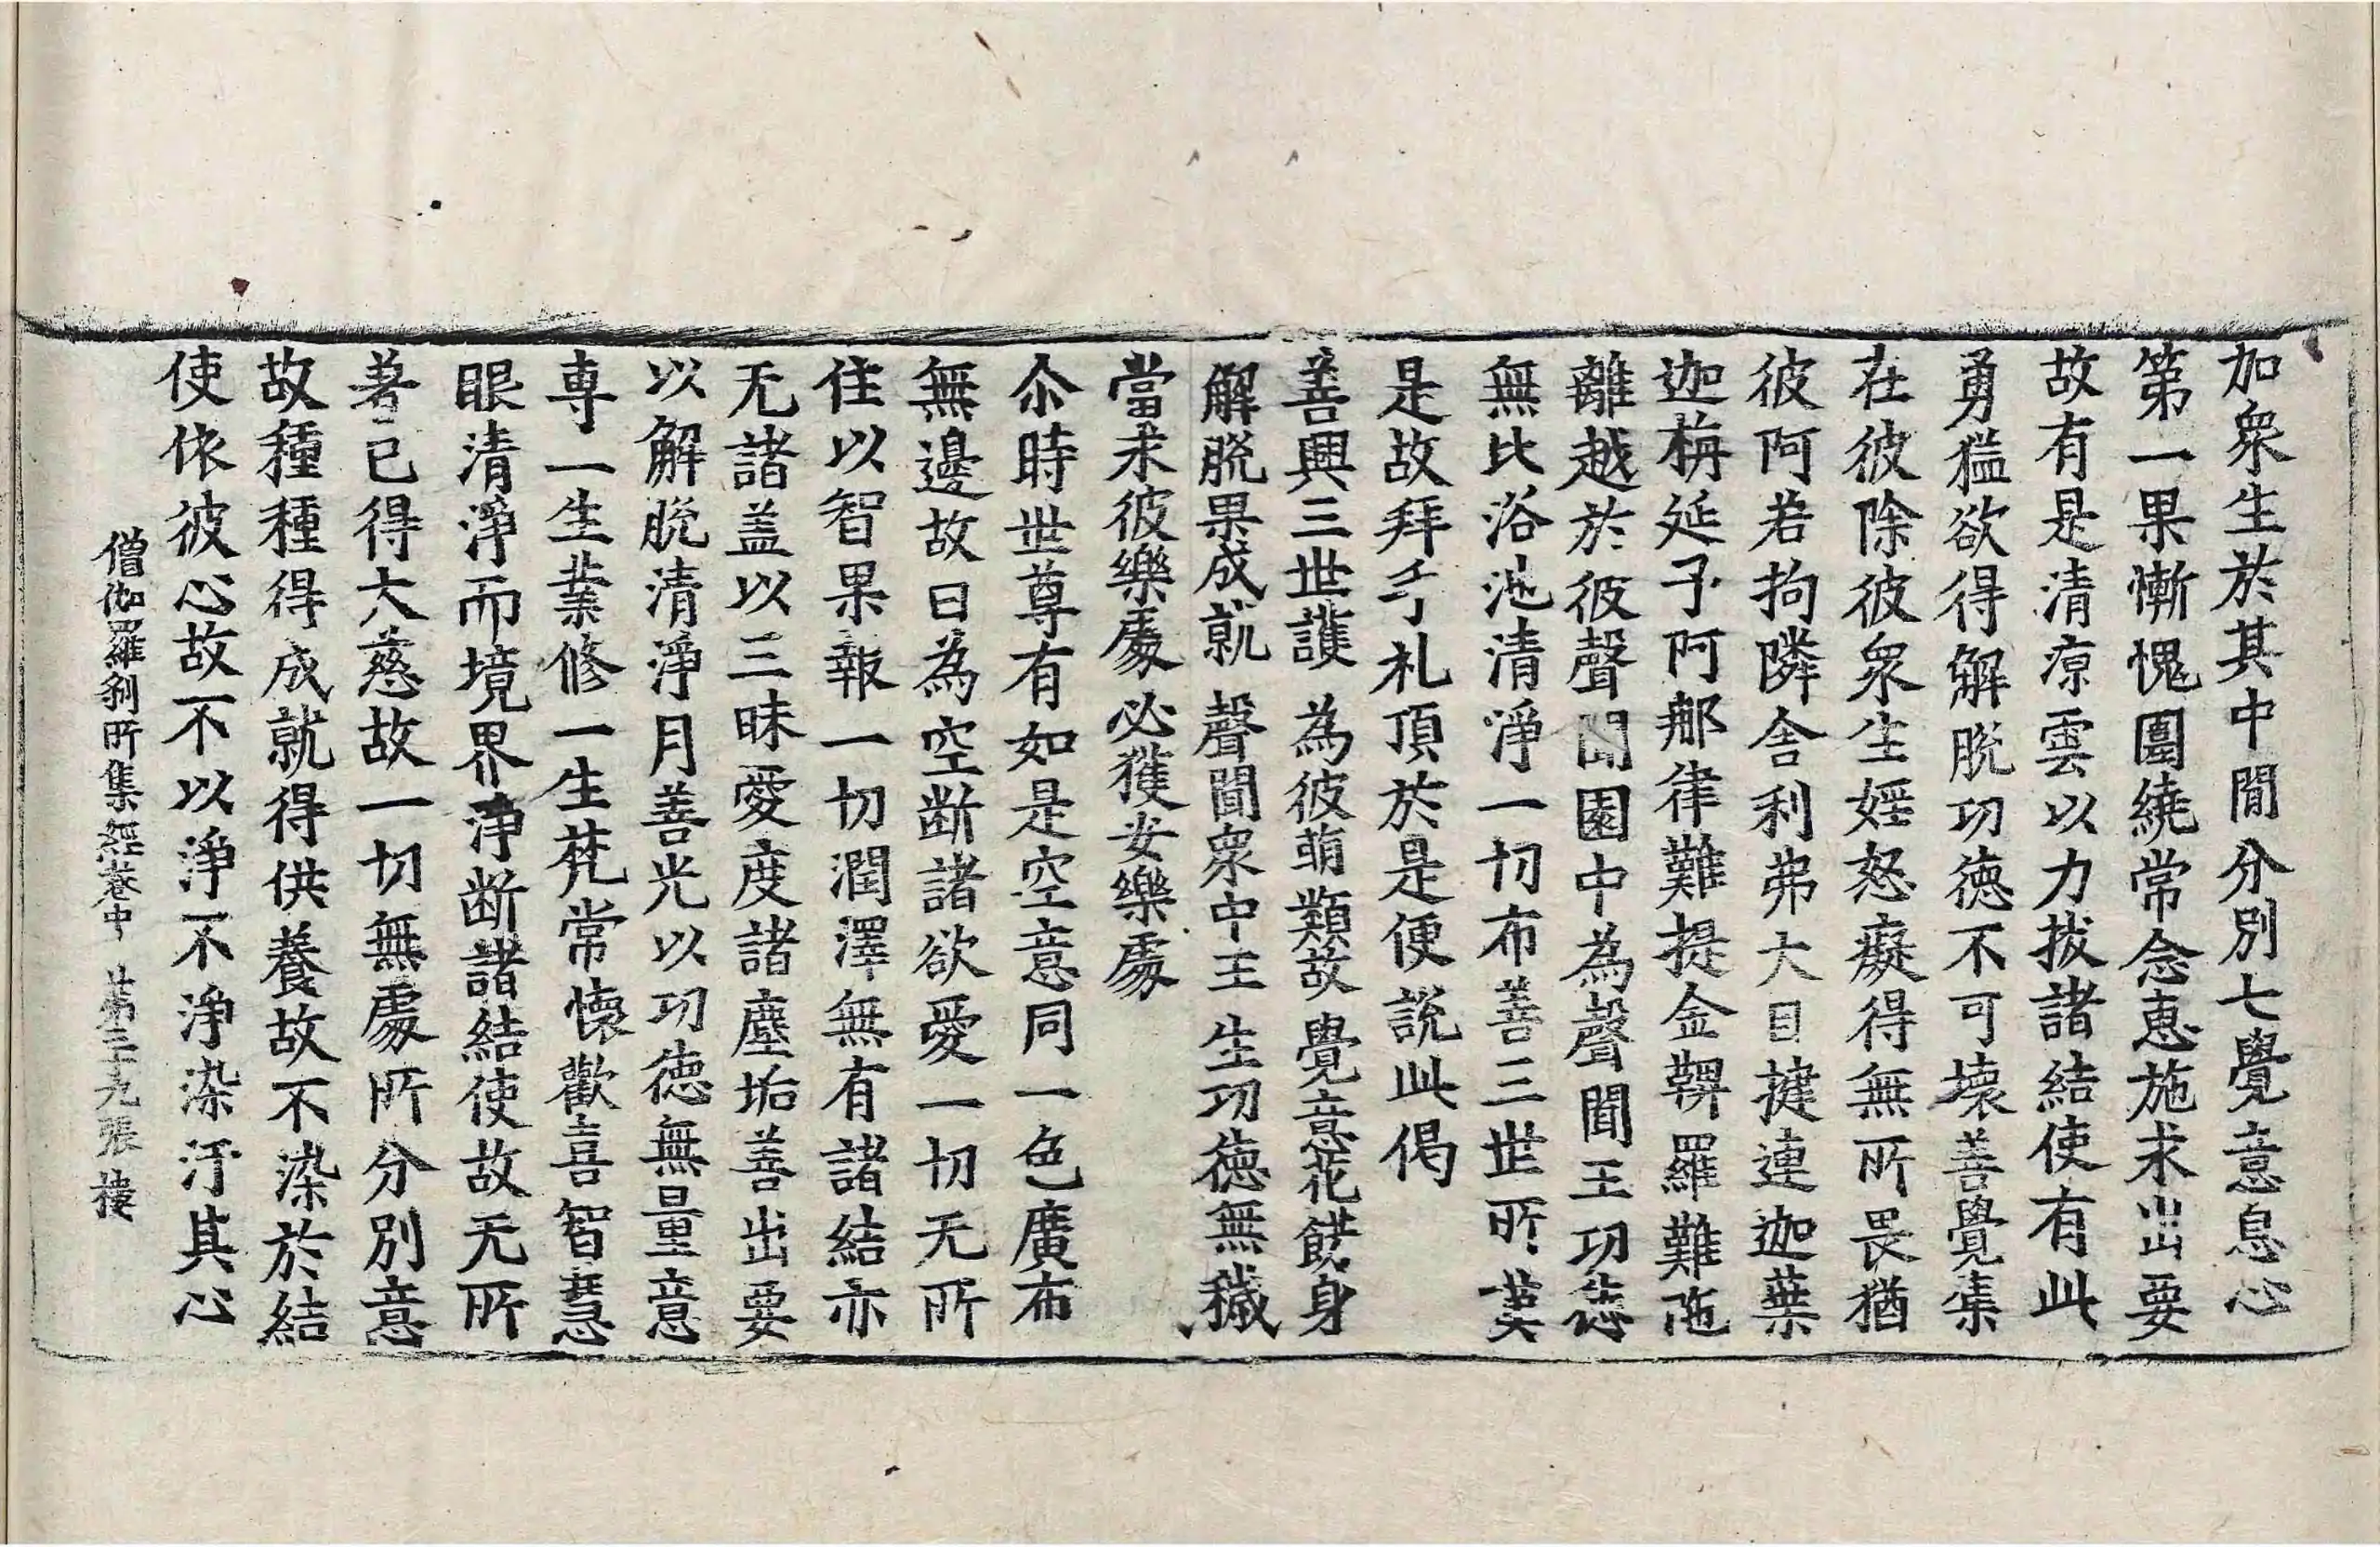 加衆生於其中間分別七覺意息心
第一果慚愧圍繞常念惠施求出要
故有是清凉雲以力拔諸結使有此
勇猛欲得解脫功德不可壞善覺集
在彼除彼衆生婬怒癡得無所畏猶
彼阿若拘隣舍利弗大目揵連迦葉
迦栴延子阿那律難提金鞞羅難陁
離越於彼聲聞園中為聲聞王功德
無比浴池清淨一切布善三世所
是故拜手礼頂於是便說此偈
善興三世護 為彼萌類故 覺意花餝身
解脫果成就 聲聞衆中王 生功德無穢
當求彼樂處 必獲安樂處
尒時世尊有如是空意同一色廣布
無邊故曰為空断諸欲愛一切无所
住以智果報一切潤澤無有諸結亦
无諸盖以三昧愛度諸塵垢善出要
以解脫清淨月善光以功德無量意
専一生業修一生梵常懷歡喜智慧
眼清淨而境界淨断諸結使故无所
著已得大慈故一切無處所分別意
故種種得成就得供養故不染於結
使依彼心故不以淨不淨染汙其心
僧伽羅刹所集經卷中 第二十九張 棲